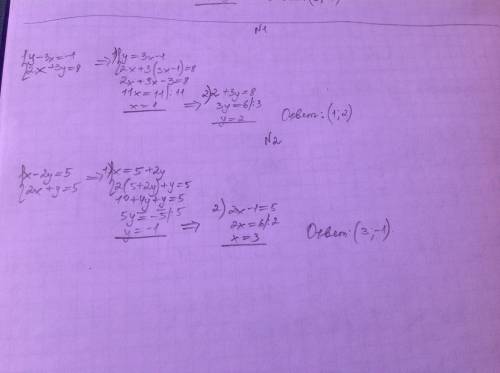 N1
{y-3x=-1 => 1){y=3x-1
{2x+3y=8 {2x+3(3x-1)=8
2x+9x-3=8
11x=11|:11
x=1 => 2)2+3y=8
3y=6|:3
y=2 Ответ: (1;2)
N2
{x-2y=5 => 1){x=5+2y
{2x+y=5 {2(5+2y)+y=5
10+4y+y=5
5y=-5|:5
y=-1 => 2) 2x-1=5
2x=6|:2
x=3 Ответ: (3;-1)